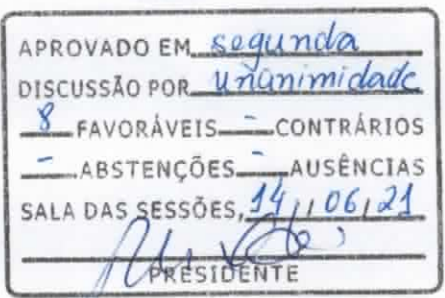 APROVADO EM segunda
DISCUSSÃO POR unanimidade
8 FAVORÁVEIS - CONTRÁRIOS
- ABSTENÇÕES - AUSÊNCIAS
SALA DAS SESSÕES, 14/06/21
PRESIDENTE